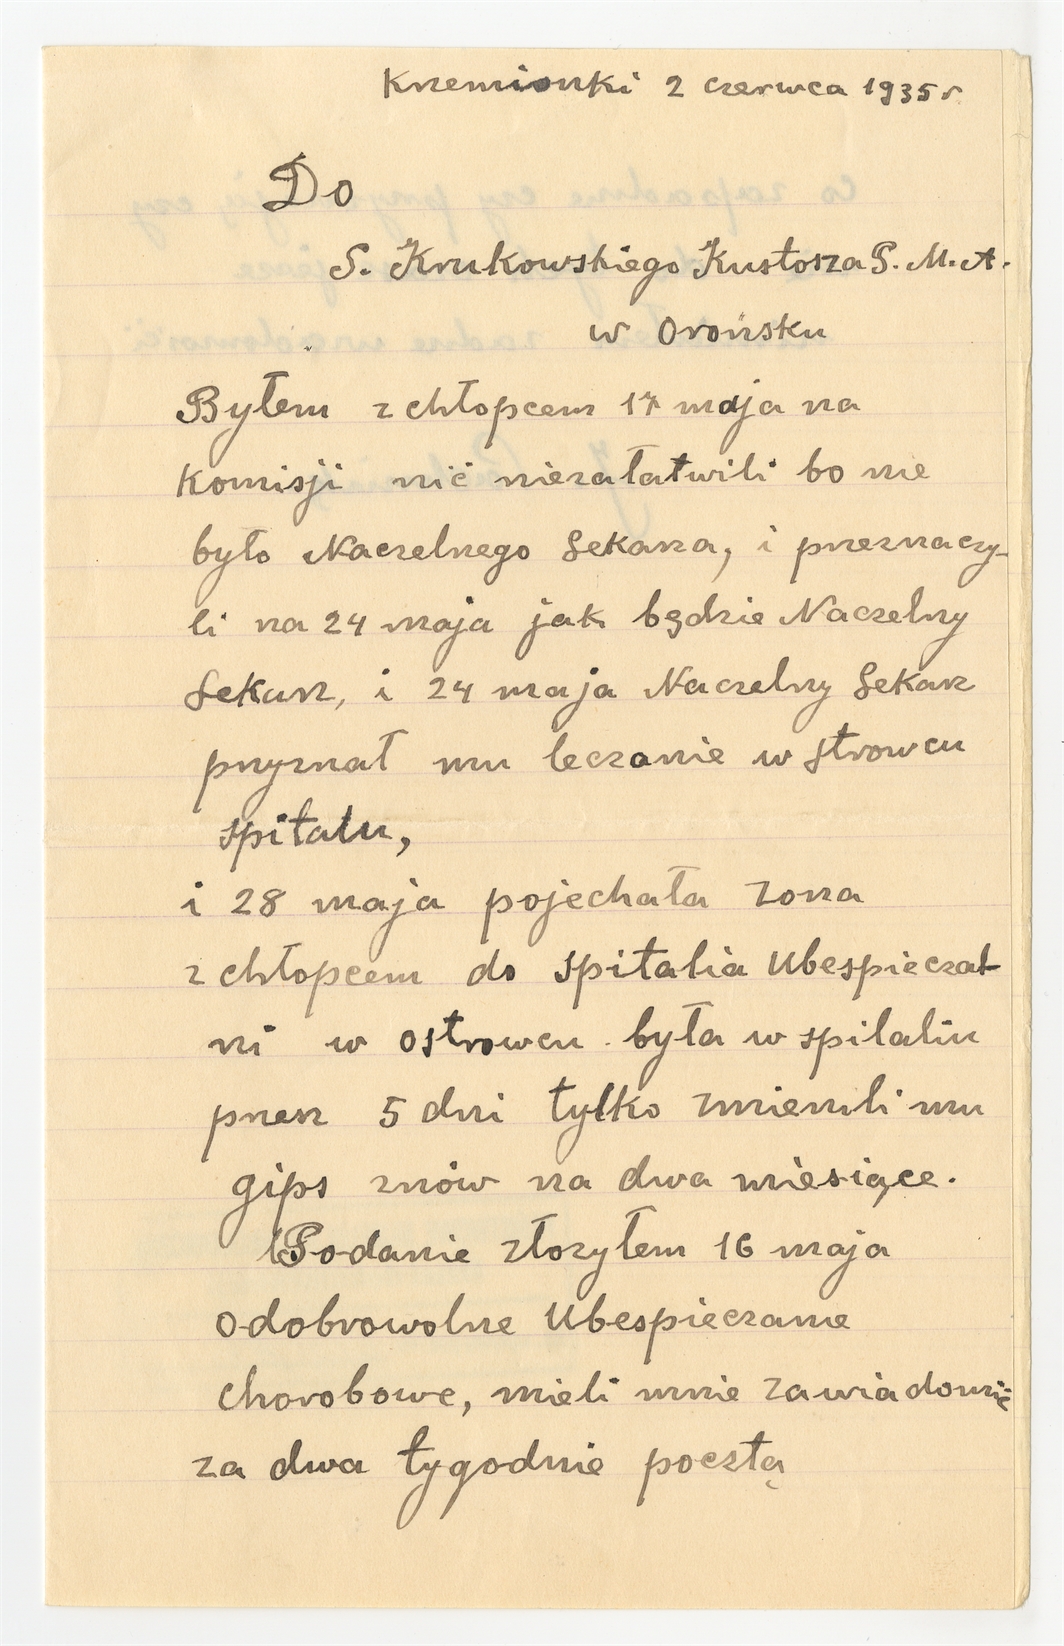 Krzemionki 2 czerwca 1935 r
Do
S. Krukowskiego Kustosza P. M. A.
w Orońsku
Byłem z chłopcem 17 maja na
Komisji nić niezałatwili bo nie
było Naczelnego Lekarza, i przeznaczy-
li na 24 maja jak będzie Naczelny
Lekarz, i 24 maja Naczelny Lekarz
przyznał mu leczanie w strowcu
spitalu,
i 28 maja pojechała zona
z chłopcem do spitalia Ubespieczal
ni w ostrowcu była w spitaliu
przez 5 dni tylko zmienili mu
gips znów na dwa miesiące.
Podanie złozyłem 16 maja
o dobrowolne Ubespieczanie
chorobowe, mieli mnie zawiadomić
za dwa tygodnie pocztą